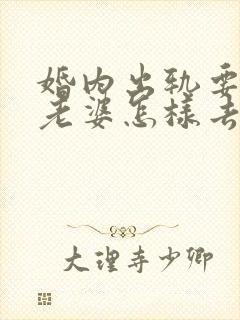 婚内出轨要
老婆怎样去
大理寺少卿